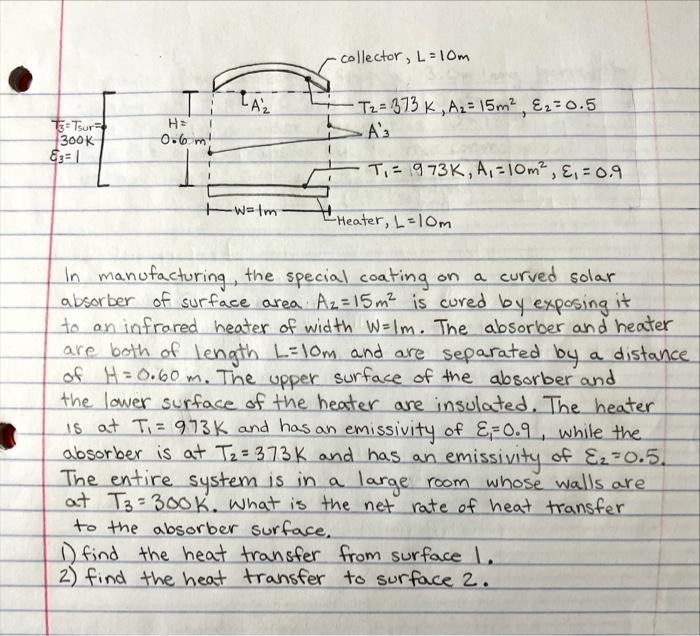 collector, L=10m
A'₂
T₂= 373 K, A₂=15m², ε₂=0.5
T₃=Tsur=
300K
ε₃=1
H=
0.6 m
A'₃
T₁= 973K, A₁=10m², ε₁=0.9
W=1m
Heater, L=10m
In manufacturing, the special coating on a curved solar
absorber of surface area A₂=15m² is cured by exposing it
to an infrared heater of width W=1m. The absorber and heater
are both of length L=10m and are separated by a distance
of H=0.60 m. The upper surface of the absorber and
the lower surface of the heater are insulated. The heater
is at T₁= 973K and has an emissivity of ε₁=0.9, while the
absorber is at T₂=373K and has an emissivity of ε₂=0.5.
The entire system is in a large room whose walls are
at T₃=300K. What is the net rate of heat transfer
to the absorber surface.
1) find the heat transfer from surface 1.
2) find the heat transfer to surface 2.